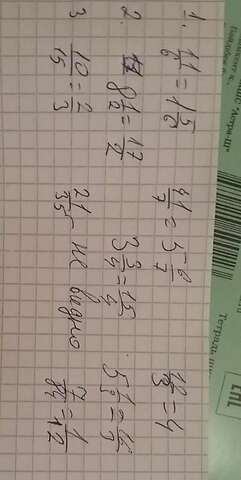 1. 11/6 = 1 5/6   41/7 = 5 6/7   12/3 = 4
2. 8 1/2 = 17/2   3 3/4 = 15/4   5 1/3 = 16/3
3. 10/15 = 2/3   21/35 - не видно   7/84 = 1/12
Тетрадь
EAC